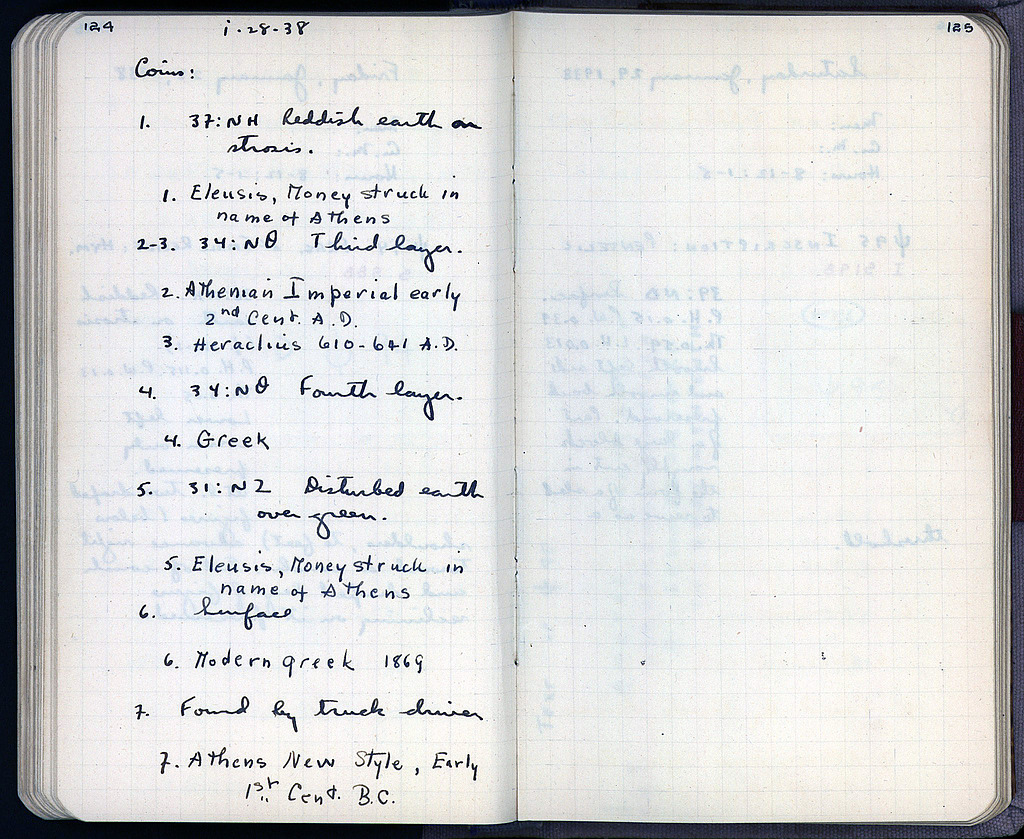 124
i·28·38
Coins:
1. 37:NH Reddish earth on
strosis.
1. Eleusis, Money struck in
name of Athens
2-3. 34:NΘ Third layer.
2. Athenian Imperial early
2nd Cent. A.D.
3. Heraclius 610-641 A.D.
4. 34:NΘ Fourth layer.
4. Greek
5. 31:NZ Disturbed earth
over green.
5. Eleusis, Money struck in
name of Athens
6. Surface
6. Modern greek 1869
7. Found by truck driver
7. Athens New Style, Early
1st Cent. B.C.
125